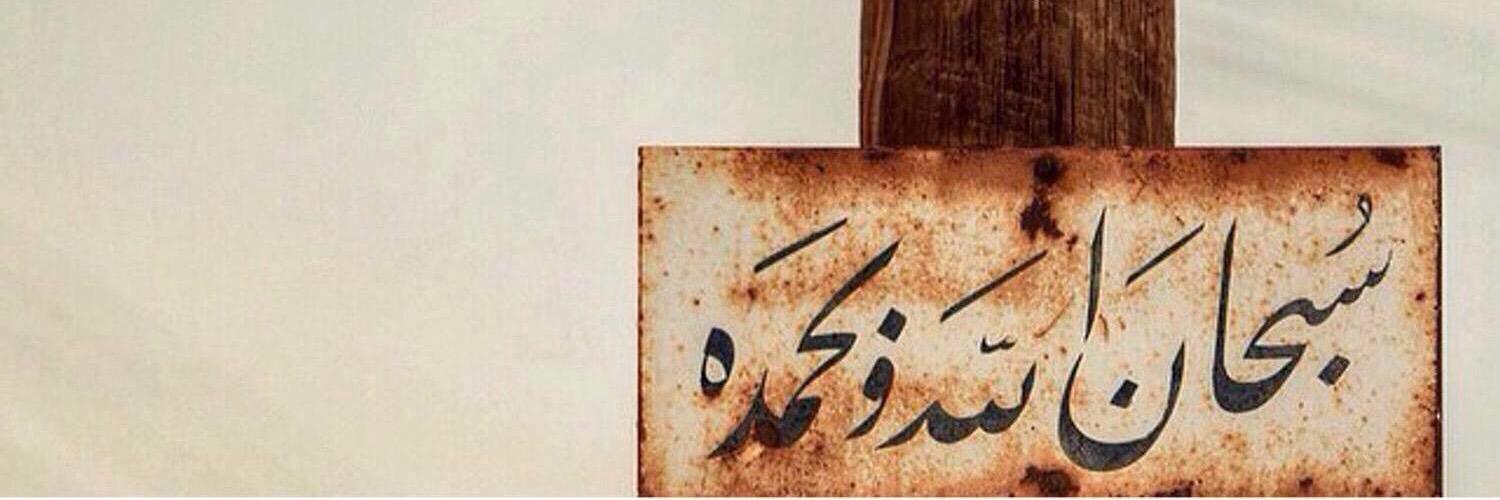 سُبحانَ اللّهِ وَبحمدِه